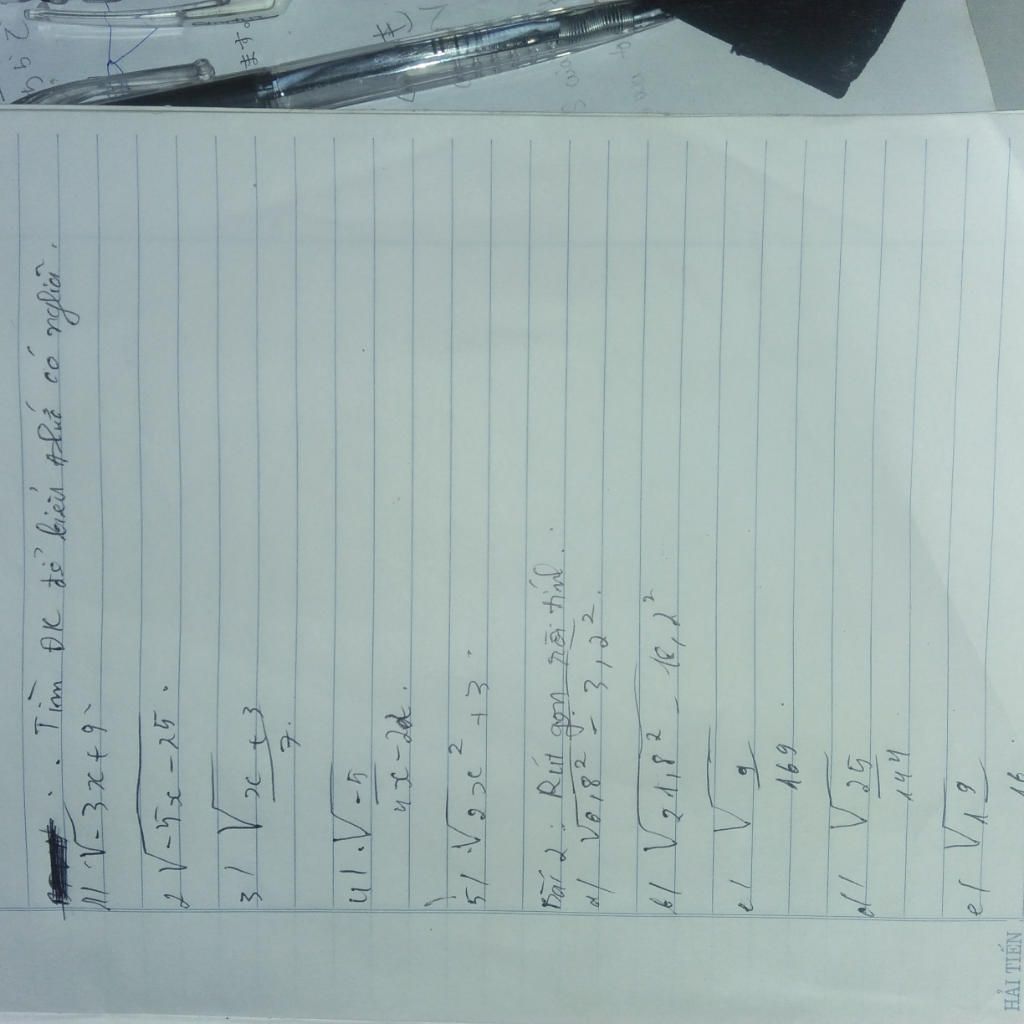 Tìm ĐK để biểu thức có nghĩa.
1/ √-3x+9
2 √-5x-25.
3/ √x+3
7.
4/ √-5
4x-2
5/ √2x²+3.
Bài 2: Rút gọn rồi tính.
a/ √6,8²-3,2².
b/ √21,8²-18,2²
c/ √9
169
d/ √25
144
e/ √1 9
16
HẢI TIẾN